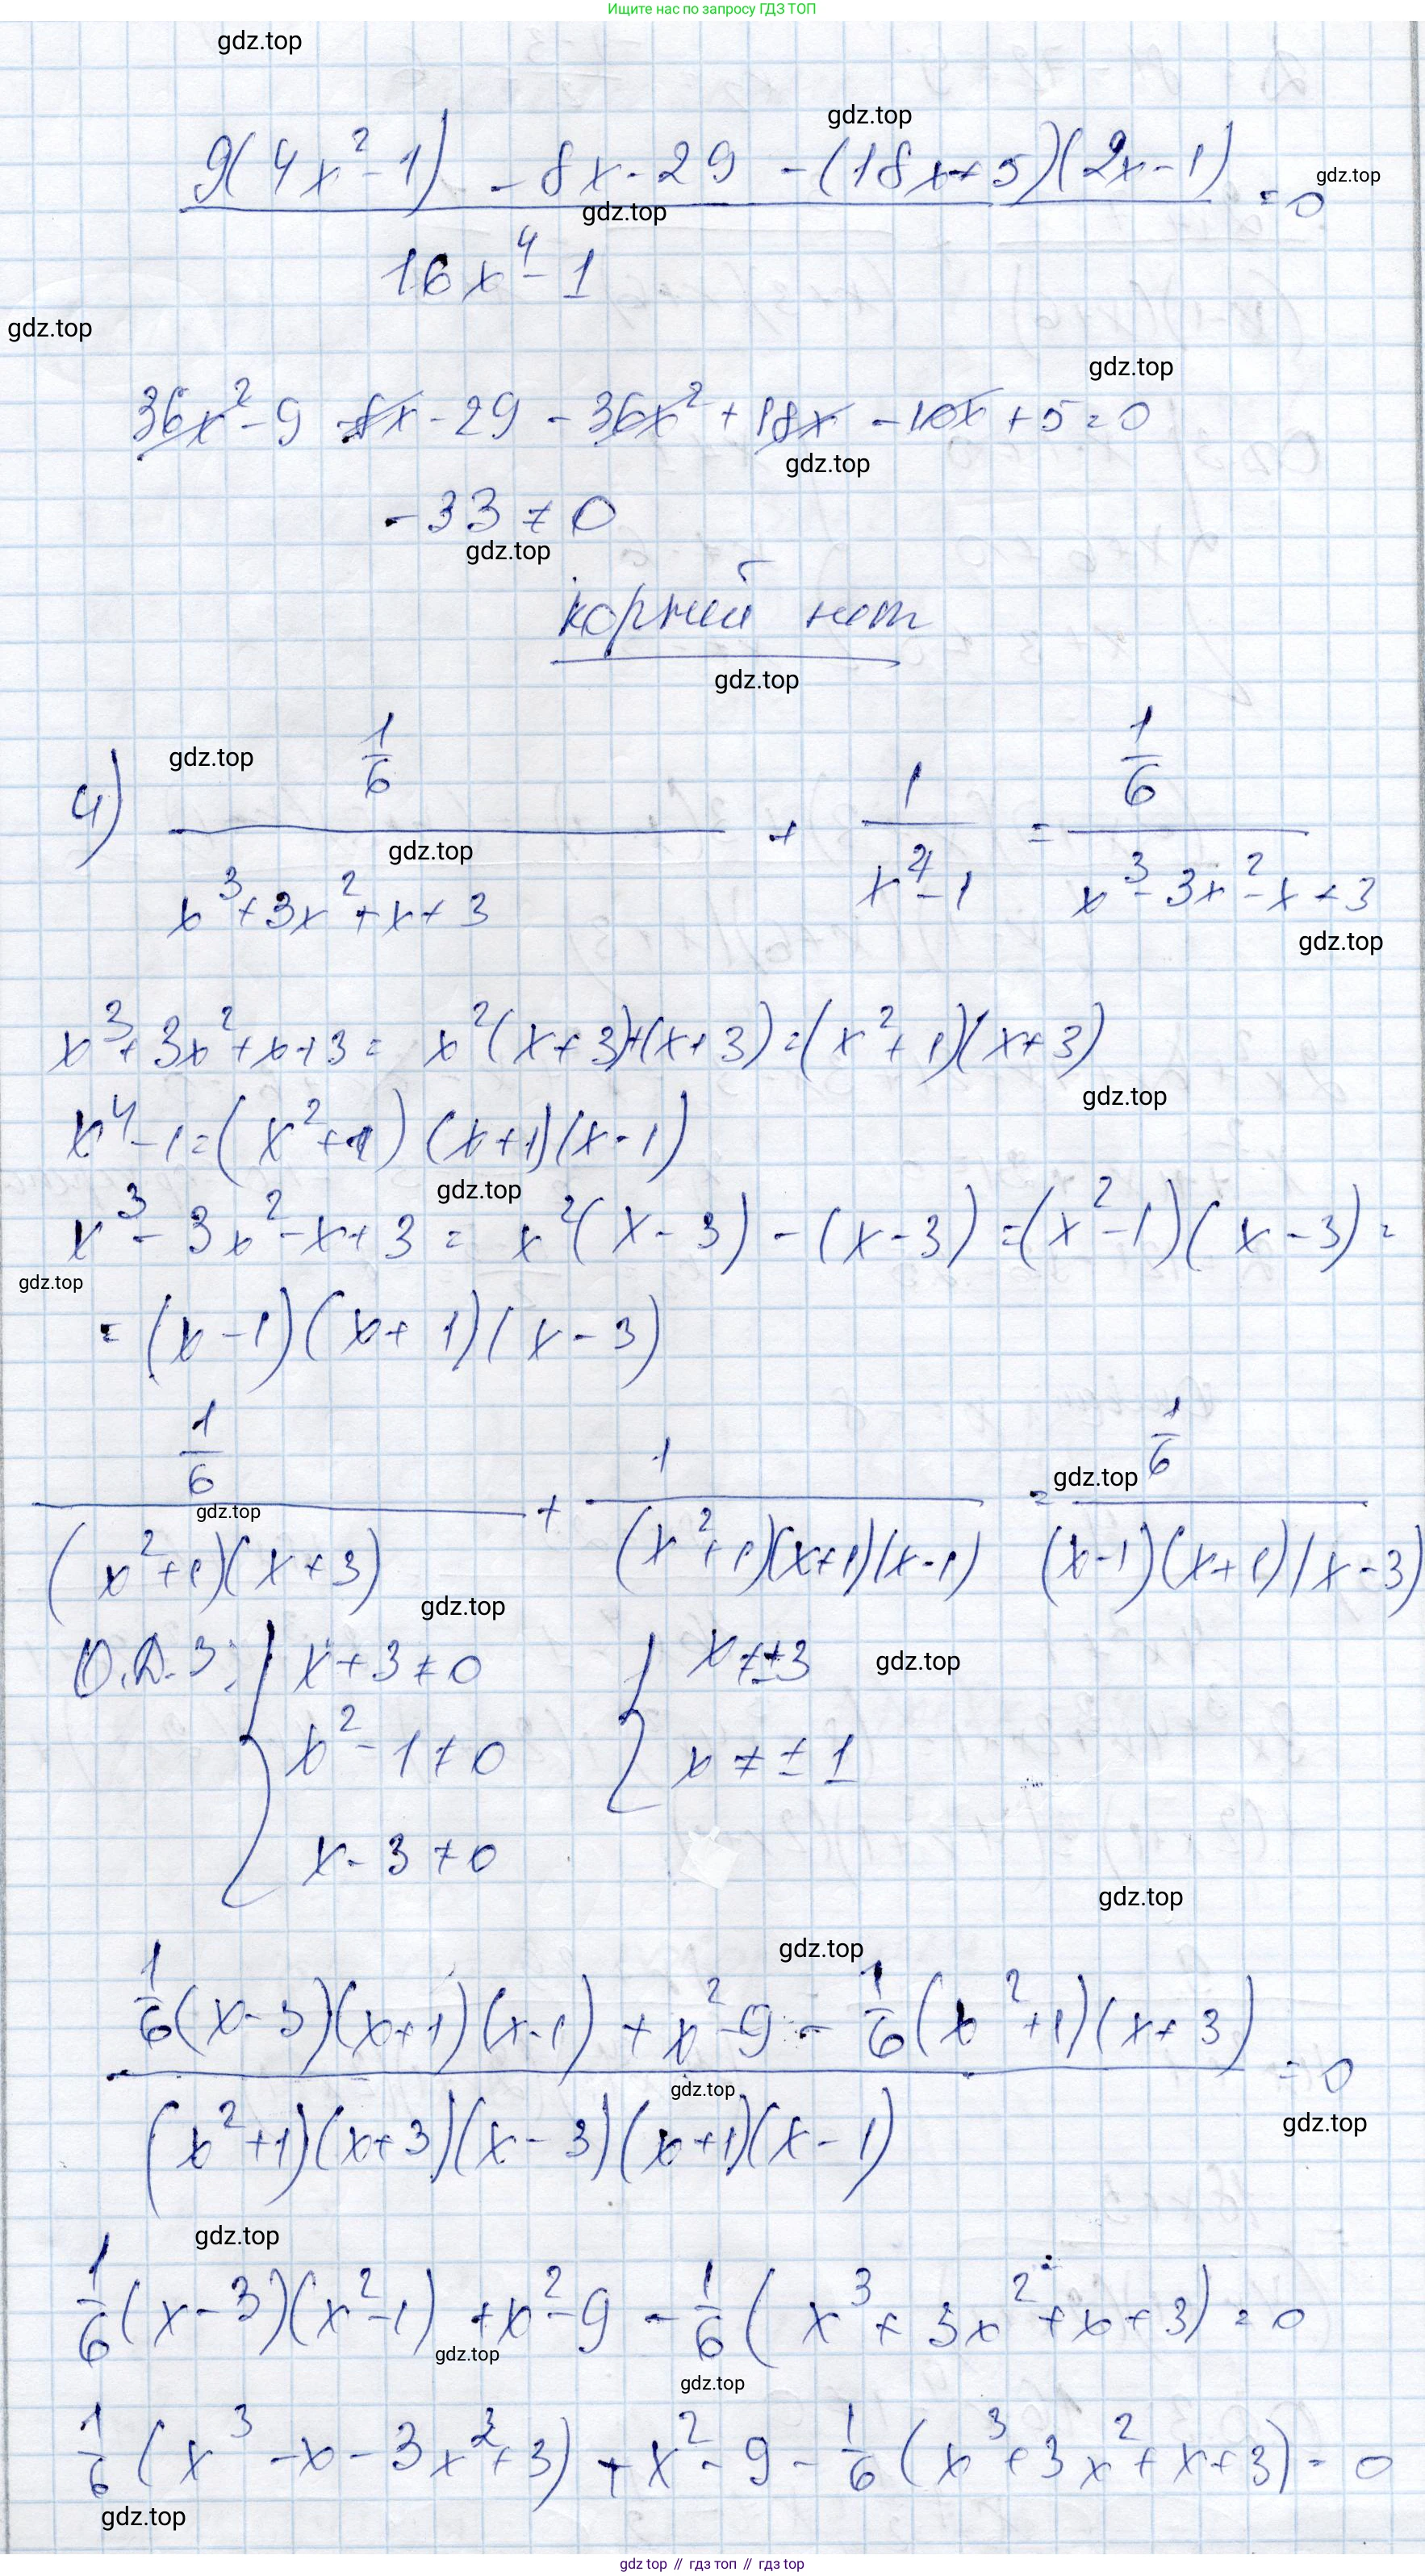 Ищите нас по запросу ГДЗ ТОП
gdz.top
gdz.top
9(4x² - 1) - 8x - 29 - (18x + 5)(2x - 1)
gdz.top
= 0
gdz.top
16x⁴ - 1
gdz.top
gdz.top
36x² - 9 - 8x - 29 - 36x² + 18x - 10x + 5 = 0
gdz.top
-33 ≠ 0
gdz.top
корней нет
gdz.top
4) 1/6 / (x³ + 3x² + x + 3) + 1 / (x⁴ - 1) = 1/6 / (x³ - 3x² - x + 3)
gdz.top
gdz.top
gdz.top
x³ + 3x² + x + 3 = x²(x + 3) + (x + 3) = (x² + 1)(x + 3)
gdz.top
x⁴ - 1 = (x² + 1)(x + 1)(x - 1)
gdz.top
x³ - 3x² - x + 3 = x²(x - 3) - (x - 3) = (x² - 1)(x - 3) =
gdz.top
= (x - 1)(x + 1)(x - 3)
1/6 / ((x² + 1)(x + 3)) + 1 / ((x² + 1)(x + 1)(x - 1)) = 1/6 / ((x - 1)(x + 1)(x - 3))
gdz.top
gdz.top
gdz.top
О.Д.З: { x + 3 ≠ 0 { x ≠ ±3
gdz.top
x² - 1 ≠ 0 x ≠ ± 1
x - 3 ≠ 0
gdz.top
gdz.top
1/6(x - 3)(x + 1)(x - 1) + x² - 9 - 1/6(x² + 1)(x + 3)
= 0
gdz.top
gdz.top
(x² + 1)(x + 3)(x - 3)(x + 1)(x - 1)
gdz.top
1/6(x - 3)(x² - 1) + x² - 9 - 1/6(x³ + 3x² + x + 3) = 0
gdz.top
gdz.top
1/6(x³ - x - 3x² + 3) + x² - 9 - 1/6(x³ + 3x² + x + 3) = 0
gdz.top
gdz top // гдз топ // гдз top